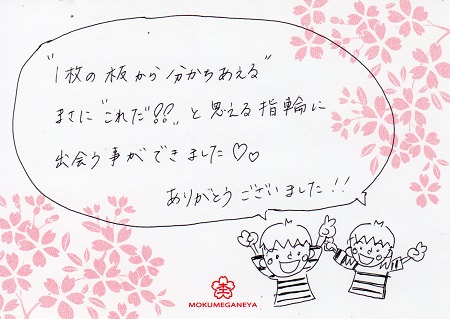 "1枚の板から分かちあえる"
まさに"これだ!!"と思える指輪に
出会う事ができました♡♡
ありがとうございました!!
MOKUMEGANEYA